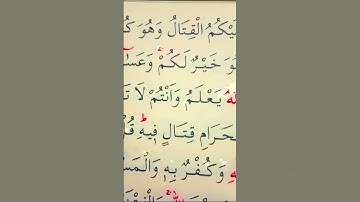 يْكُمُ الْقِتَالُ وَهُوَ كُ
وَ خَيْرٌ لَكُمْ وَعَسٰٓ
يَعْلَمُ وَاَنْتُمْ لَا تَ
حَرَامِ قِتَالٍ فٖيهِ قُ
وَكُفْرٌ بِهٖ وَالْمَسْ